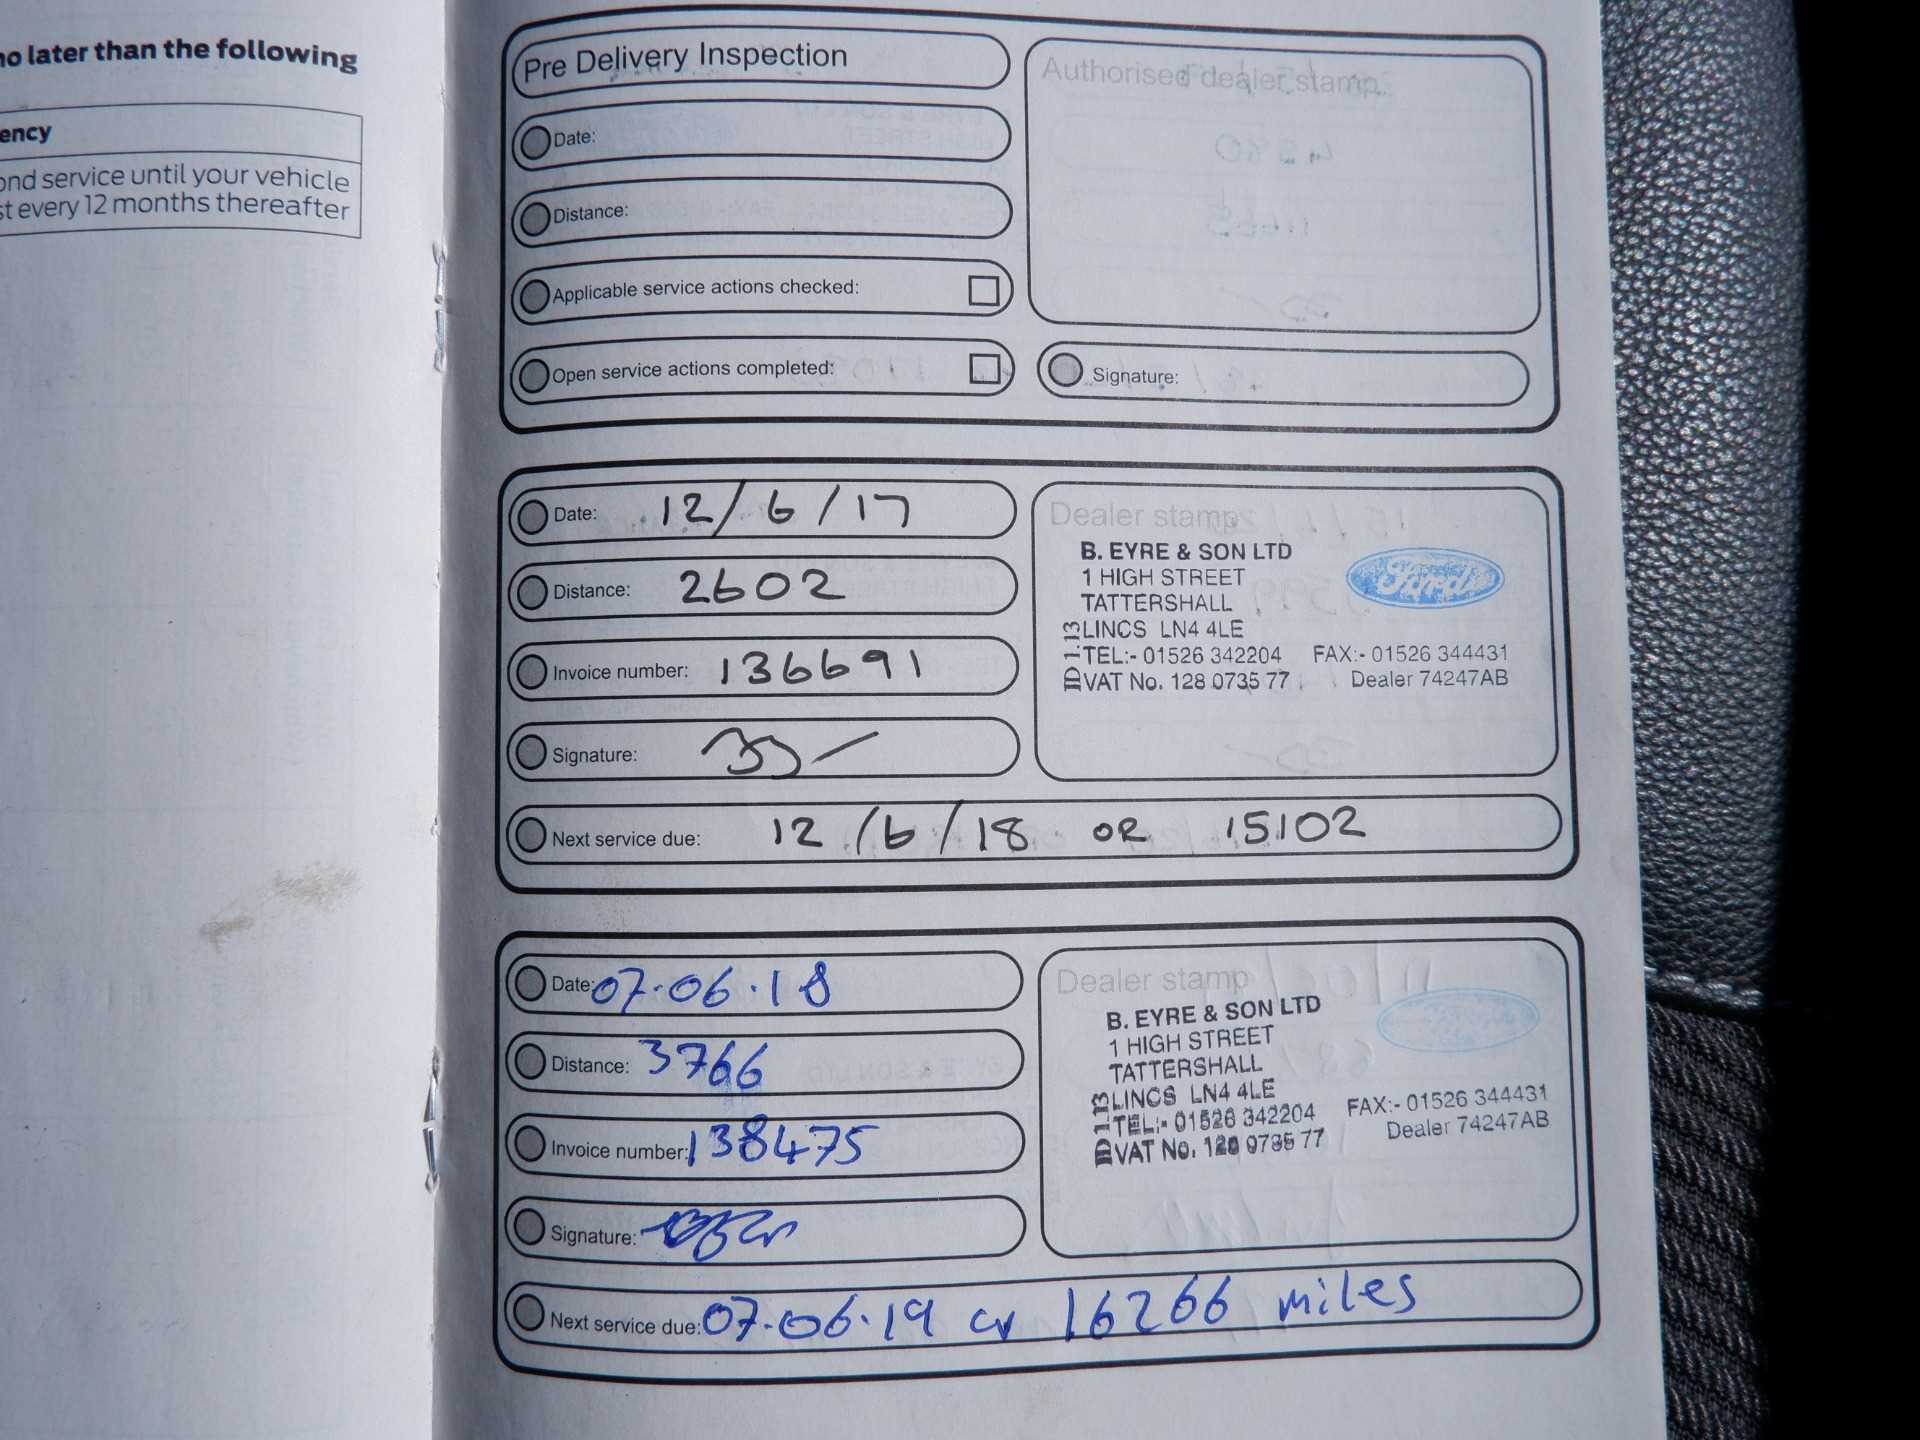 no later than the following
ency
ond service until your vehicle
st every 12 months thereafter
Pre Delivery Inspection
Authorised dealer stamp:
Date:
Distance:
Applicable service actions checked:
Open service actions completed:
Signature:
Date: 12/6/17
Distance: 2602
Invoice number: 136691
Signature:
Next service due: 12/6/18 OR 15102
Dealer stamp
B. EYRE & SON LTD
1 HIGH STREET
TATTERSHALL
LINCS LN4 4LE
TEL:- 01526 342204 FAX:- 01526 344431
VAT No. 128 0735 77 Dealer 74247AB
ID 1.13
Ford
Date: 07.06.18
Distance: 3766
Invoice number: 138475
Signature:
Next service due: 07.06.19 or 16266 miles
Dealer stamp
B. EYRE & SON LTD
1 HIGH STREET
TATTERSHALL
LINCS LN4 4LE
TEL:- 01526 342204 FAX:- 01526 344431
VAT No. 128 0735 77 Dealer 74247AB
ID 1.13